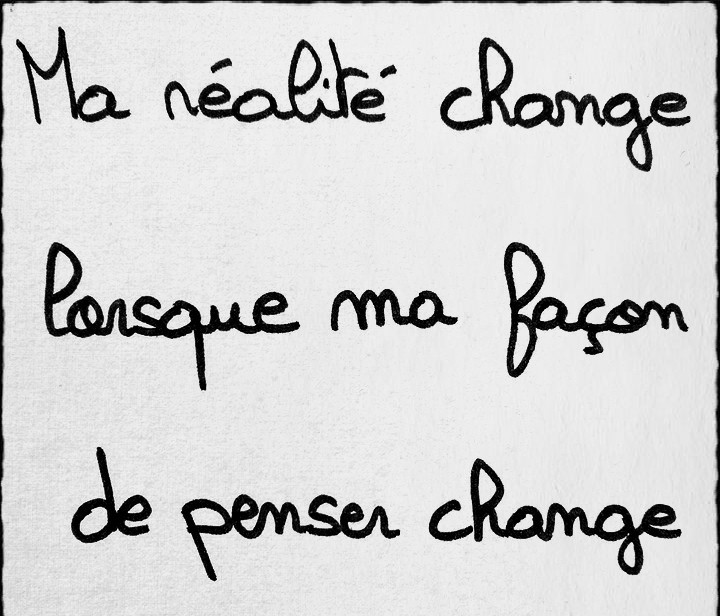 Ma réalité change
lorsque ma façon
de penser change